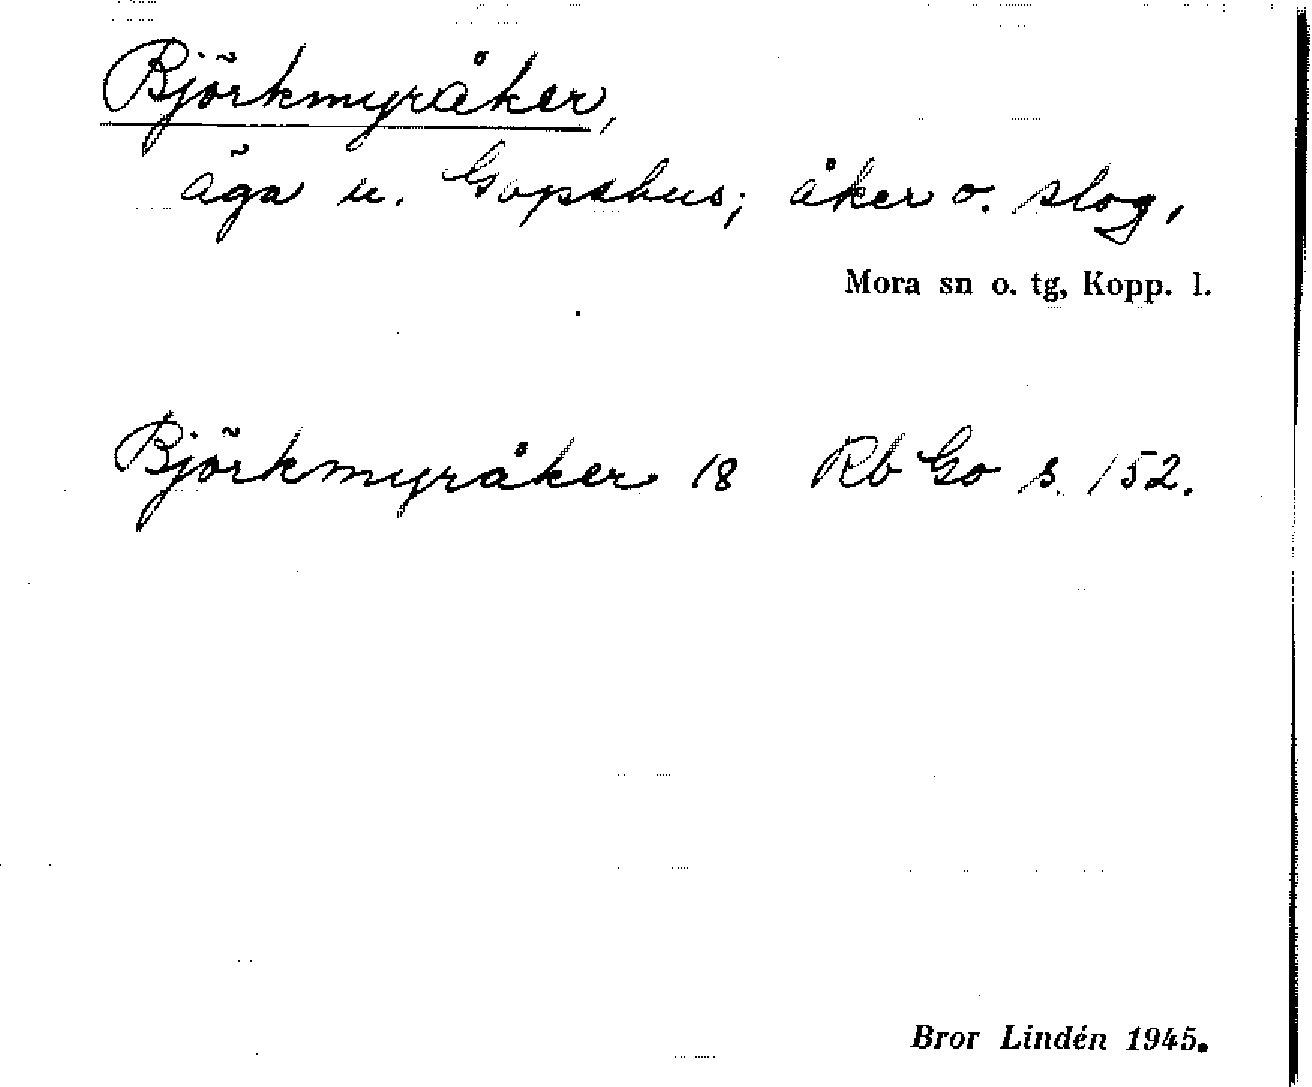 Björkmyråker,
äga u. Gopshus; åker o. slog,
Mora sn o. tg, Kopp. l.
Björkmyråker 18 Rb Go s. 152.
Bror Lindén 1945.